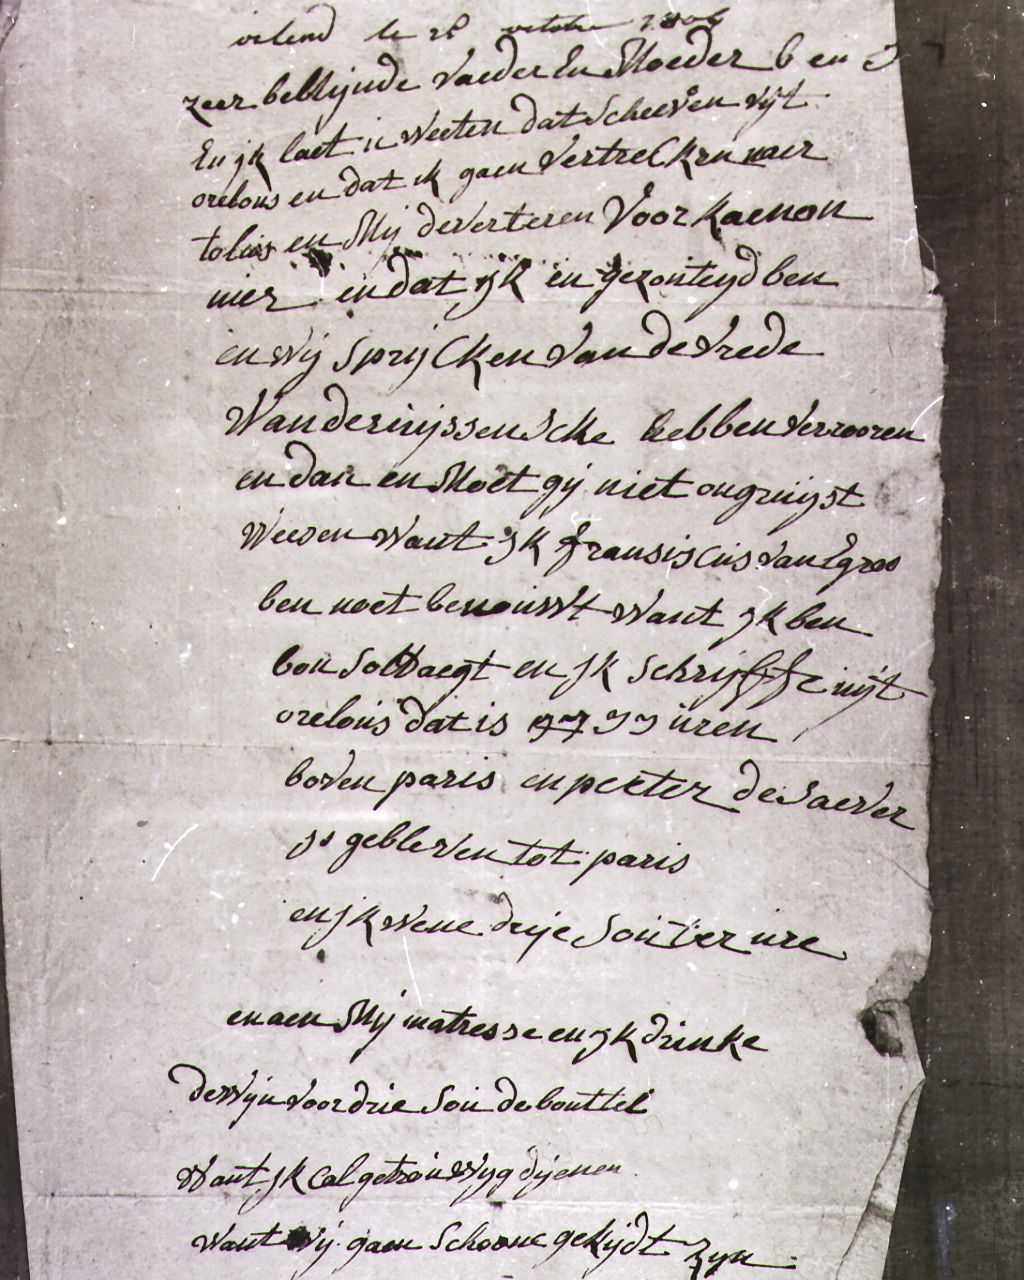 le 26 octobre 1806
zeer beMijnde vaeder En Moeder b en J
En jk laet u Weeten dat Schreeven uyt
orelons en dat ik gaen vertrecken naer
tolus en Mij deverteren voor kaenon
nier en dat jk en gezonteyd ben
en Wij sprijcken van de vrede
Wan de ruyssen Scke hebben verrooren
en dan en Moet gij niet ongruijst
Weesen Want jk fransiscus van Egroo
ben noet benouWt Want jk ben
bon soldaegt en jk schrijffe uijt
orelons dat is 33 uren
boven paris en peeter de Saever
js gebleven tot paris
en jk Wene drije Sou ver ure
en aen Mij matresse en jk drinke
de Wijn voor drie Sou de bouttel
Want jk cal getrou Wyg dijenen
Want Wij gaen Schoone gekijdt zyn